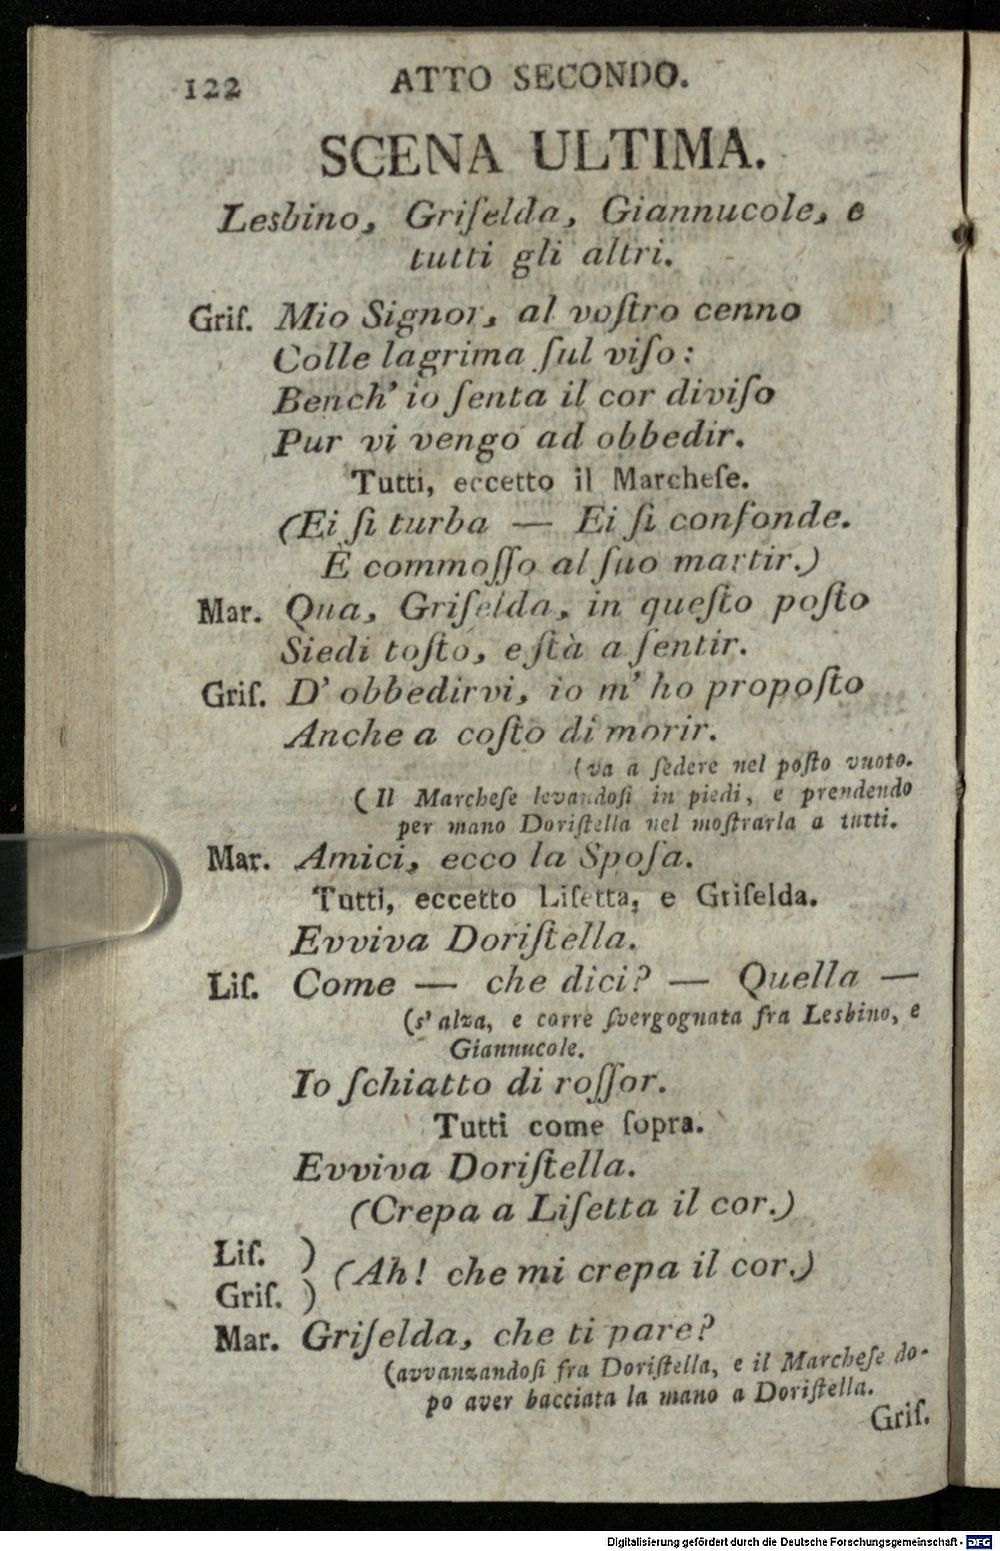 122 ATTO SECONDO.
SCENA ULTIMA.
Lesbino, Griſelda, Giannucole, e
tutti gli altri.
Griſ. Mio Signor, al voſtro cenno
Colle lagrima ſul viſo:
Bench' io ſenta il cor diviſo
Pur vi vengo ad obbedir.
Tutti, eccetto il Marcheſe.
(Ei ſi turba — Ei ſi confonde.
È commoſſo al ſuo martir.)
Mar. Qua, Griſelda, in queſto poſto
Siedi toſto, e ſtà a ſentir.
Griſ. D' obbedirvi, io m' ho propoſto
Anche a coſto di morir.
(va a ſedere nel poſto vuoto.
(Il Marcheſe levandoſi in piedi, e prendendo
per mano Doriſtella nel moſtrarla a tutti.
Mar. Amici, ecco la Spoſa.
Tutti, eccetto Liſetta, e Griſelda.
Evviva Doriſtella.
Liſ. Come — che dici? — Quella —
(s' alza, e corre ſvergognata fra Lesbino, e
Giannucole.
Io ſchiatto di roſſor.
Tutti come ſopra.
Evviva Doriſtella.
(Crepa a Liſetta il cor.)
Liſ. )
(Ah! che mi crepa il cor.)
Griſ. )
Mar. Griſelda, che ti pare?
(avvanzandoſi fra Doriſtella, e il Marcheſe do-
po aver bacciata la mano a Doriſtella.
Griſ.
Digitalisierung gefördert durch die Deutsche Forschungsgemeinschaft - DFG